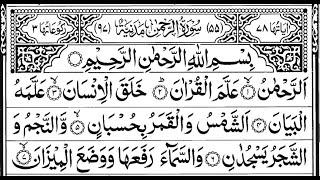 اٰیَاتُهَا ۷۸ (۵۵) سُوْرَةُ الرَّحْمٰنِ مَدَنِیَّةٌ (۹۷) رُکُوْعَاتُهَا ۳
بِسْمِ اللّٰهِ الرَّحْمٰنِ الرَّحِیْمِ
اَلرَّحْمٰنُ ۙ﴿۱﴾ عَلَّمَ الْقُرْاٰنَ ؕ﴿۲﴾ خَلَقَ الْاِنْسَانَ ۙ﴿۳﴾ عَلَّمَهُ
الْبَیَانَ ﴿۴﴾ اَلشَّمْسُ وَالْقَمَرُ بِحُسْبَانٍ ﴿۵﴾ وَّالنَّجْمُ وَ
الشَّجَرُ یَسْجُدٰنِ ﴿۶﴾ وَالسَّمَآءَ رَفَعَهَا وَوَضَعَ الْمِیْزَانَ ۙ﴿۷﴾